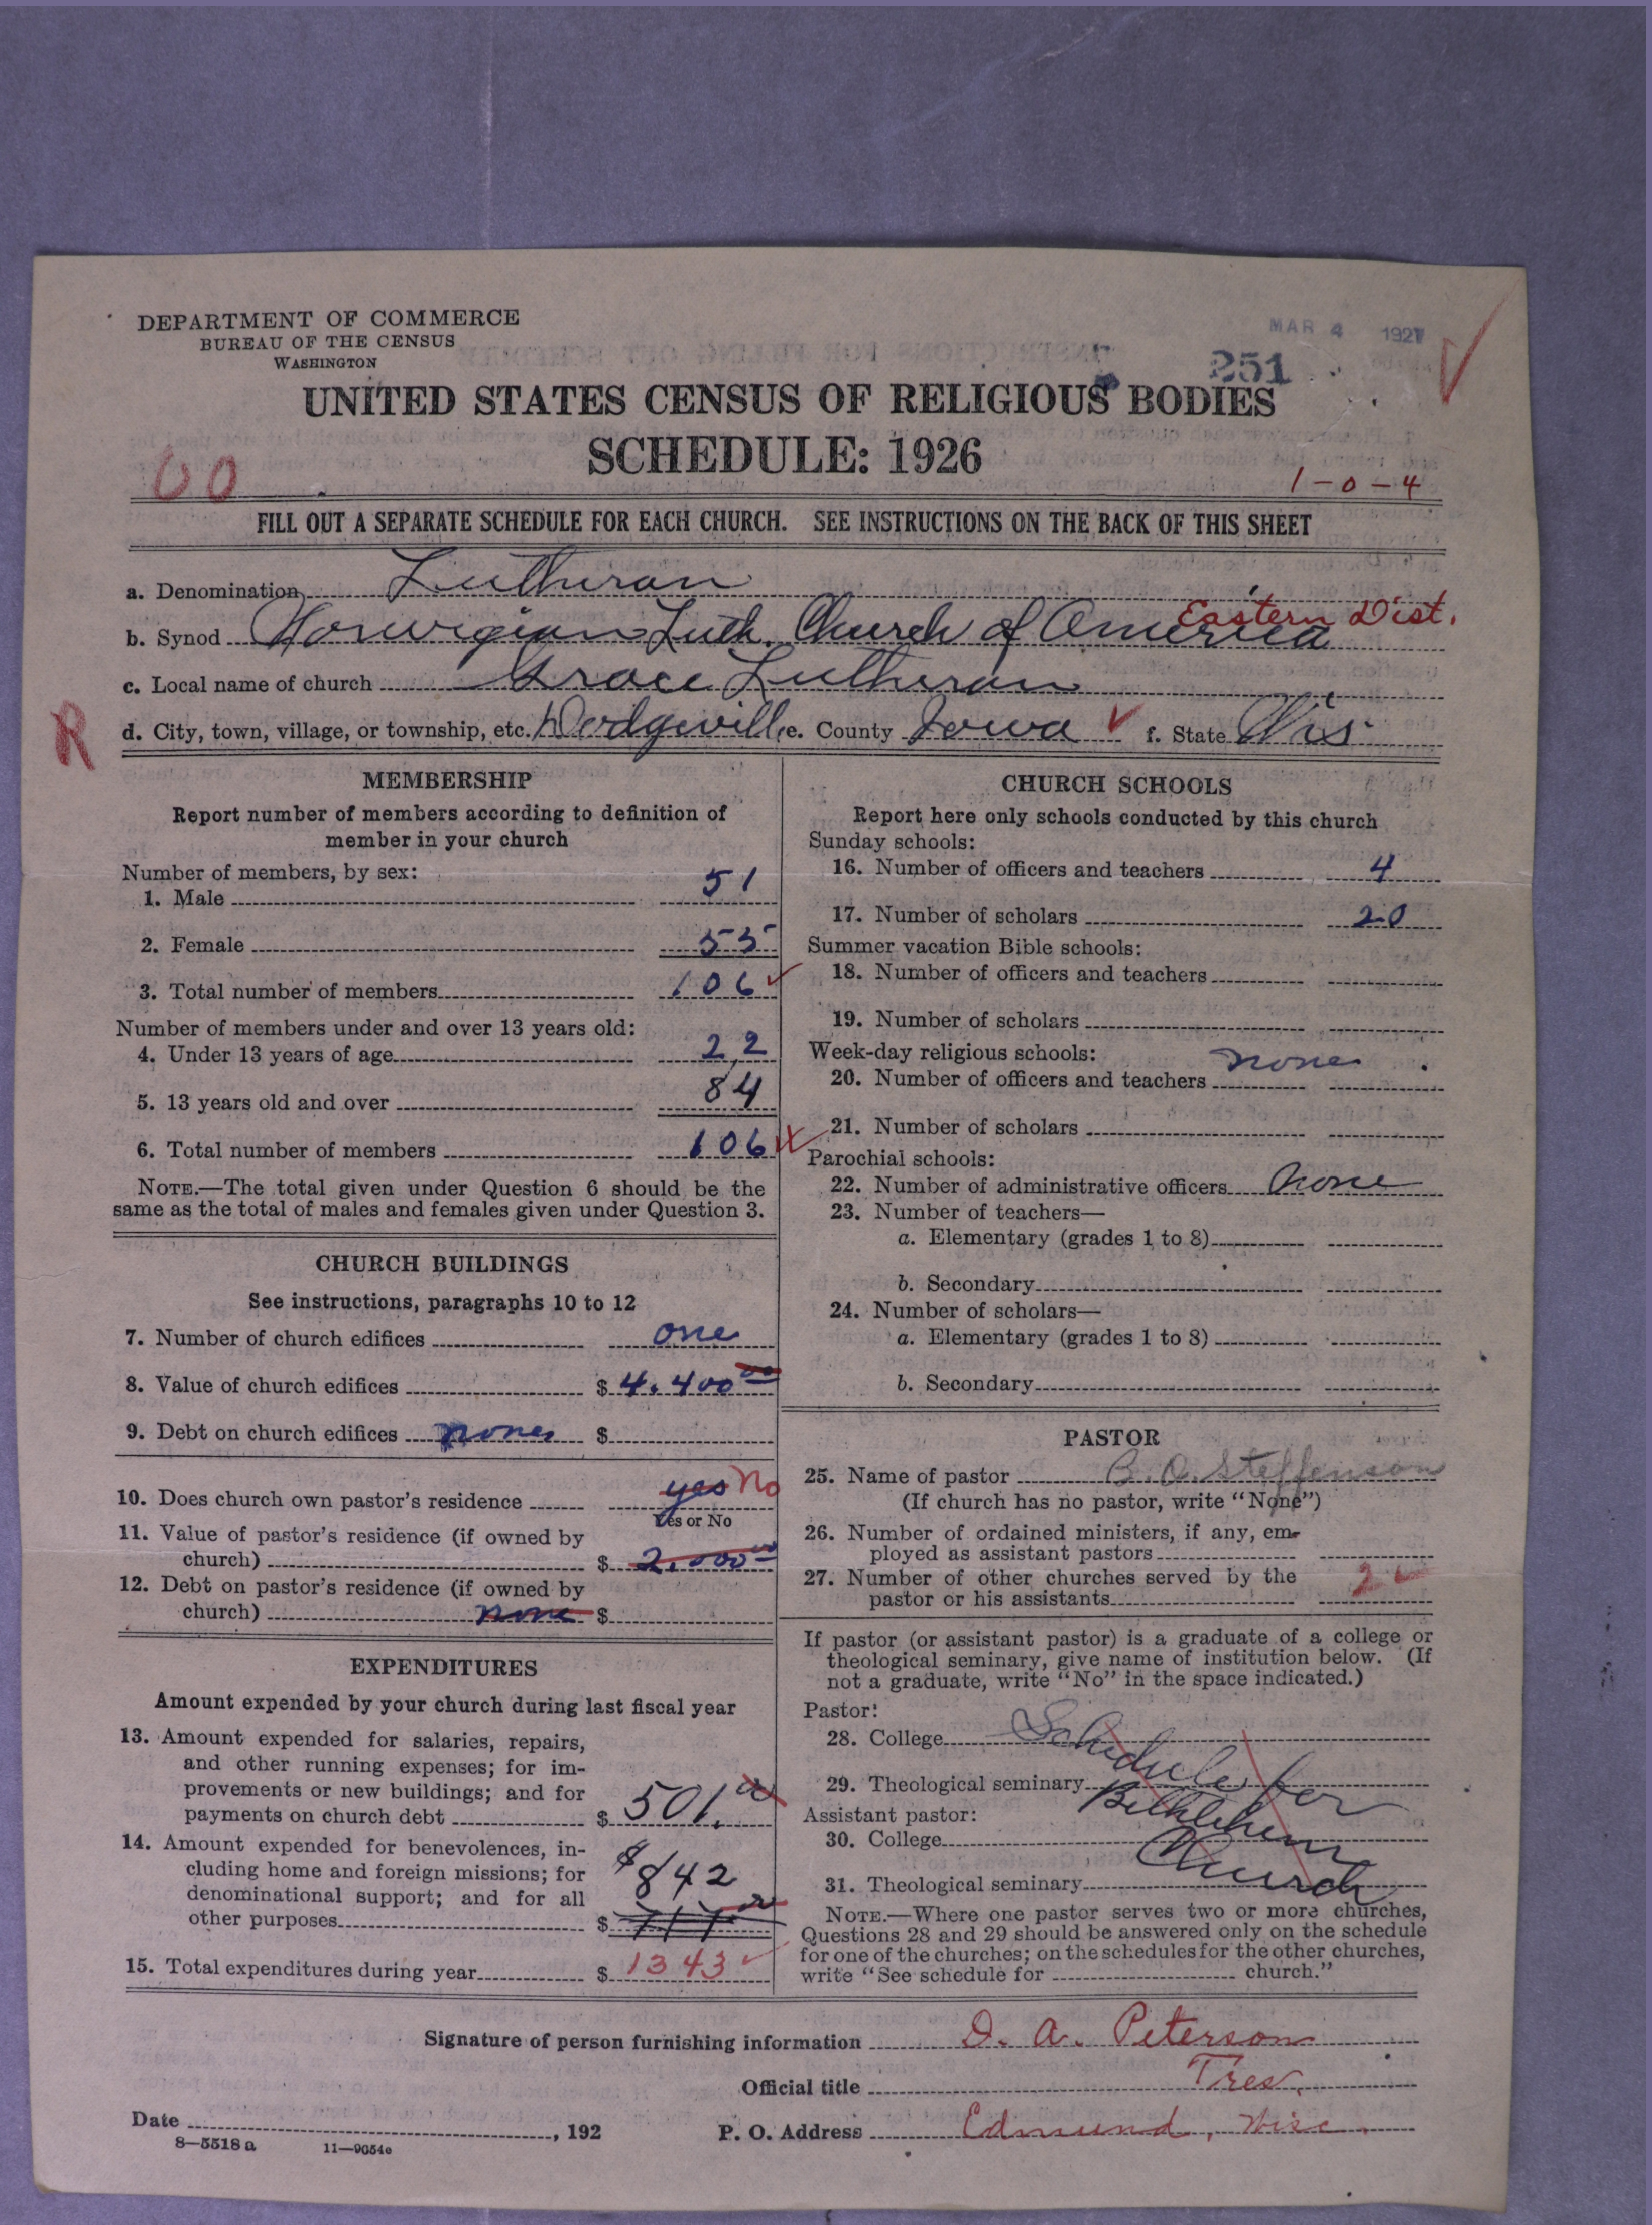 DEPARTMENT OF COMMERCE
BUREAU OF THE CENSUS
WASHINGTON
MAR 4 1927
251
UNITED STATES CENSUS OF RELIGIOUS BODIES
SCHEDULE: 1926
00
1-0-4
FILL OUT A SEPARATE SCHEDULE FOR EACH CHURCH. SEE INSTRUCTIONS ON THE BACK OF THIS SHEET
a. Denomination Lutheran
Eastern Dist.
b. Synod Norwegian Luth. Church of America
c. Local name of church Grace Lutheran
R
d. City, town, village, or township, etc. Dodgeville e. County Iowa f. State Wis.
MEMBERSHIP
Report number of members according to definition of
member in your church
Number of members, by sex:
1. Male 51
2. Female 55
3. Total number of members 106
Number of members under and over 13 years old:
4. Under 13 years of age 22
5. 13 years old and over 84
6. Total number of members 106
NOTE.—The total given under Question 6 should be the
same as the total of males and females given under Question 3.
CHURCH BUILDINGS
See instructions, paragraphs 10 to 12
7. Number of church edifices one
8. Value of church edifices $ 4.400 00
9. Debt on church edifices none $
10. Does church own pastor's residence yes No
Yes or No
11. Value of pastor's residence (if owned by
church) $ 2.000 00
12. Debt on pastor's residence (if owned by
church) none $
EXPENDITURES
Amount expended by your church during last fiscal year
13. Amount expended for salaries, repairs,
and other running expenses; for im-
provements or new buildings; and for
payments on church debt $ 501.
14. Amount expended for benevolences, in-
cluding home and foreign missions; for
denominational support; and for all
$842
other purposes $
15. Total expenditures during year $ 1343
CHURCH SCHOOLS
Report here only schools conducted by this church
Sunday schools:
16. Number of officers and teachers 4
17. Number of scholars 20
Summer vacation Bible schools:
18. Number of officers and teachers
19. Number of scholars
Week-day religious schools:
20. Number of officers and teachers none
21. Number of scholars
Parochial schools:
22. Number of administrative officers None
23. Number of teachers—
a. Elementary (grades 1 to 8)
b. Secondary
24. Number of scholars—
a. Elementary (grades 1 to 8)
b. Secondary
PASTOR
25. Name of pastor B. O. Steffenson
(If church has no pastor, write "None")
26. Number of ordained ministers, if any, em-
ployed as assistant pastors
27. Number of other churches served by the
pastor or his assistants 2
If pastor (or assistant pastor) is a graduate of a college or
theological seminary, give name of institution below. (If
not a graduate, write "No" in the space indicated.)
Pastor:
28. College
Schedule for
29. Theological seminary
Bethlehem
Assistant pastor:
30. College
Church
31. Theological seminary
NOTE.—Where one pastor serves two or more churches,
Questions 28 and 29 should be answered only on the schedule
for one of the churches; on the schedules for the other churches,
write "See schedule for church."
Signature of person furnishing information D. A. Peterson
Official title Tres.
Date , 192 P. O. Address Edmund, Wisc.
8—5518 a 11—9054e